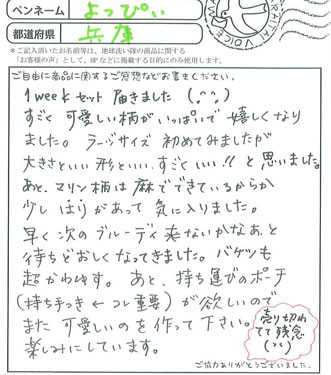 ペンネーム よっぴぃ
都道府県 兵庫
*ご記入頂いたお名前等は、地球洗い隊の商品に関する
「お客様の声」として、HPなどに掲載する目的にのみ使用します。
ご自由に商品に関するご感想などお書きください。
1weekセット 届きました (^^)
すごく 可愛しい柄がいっぱいで 嬉しくなり
ました。 ラージサイズ 初めてみましたが
大きさといい 形といい、すごく いい!! と 思いました。
あと、マリン柄は 麻でできているからか
少し はりがあって 気に入りました。
早く次の ブルーデイ 来ないかなぁと
待ちどおしくなってきました。バケツも
超かわゆす。 あと、持ち運びのポーチ
(持ち手つき ← コレ重要) が欲しいので
また 可愛しいのを作って下さい。
楽しみにしています。
売り切れ
てて残念
ご協力ありがとうございました。